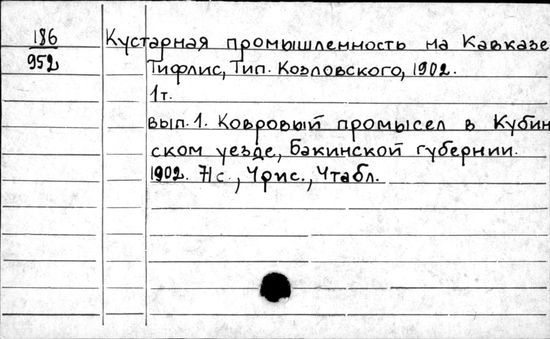 186
952
Кустарная промышленность на Кавказе
Тифлис, Тип. Козловского, 1902.
1т.
вып. 1. Ковровый промысел в Кубин
ском уезде, Бакинской губернии.
1902. 71с., 4рис., 4табл.